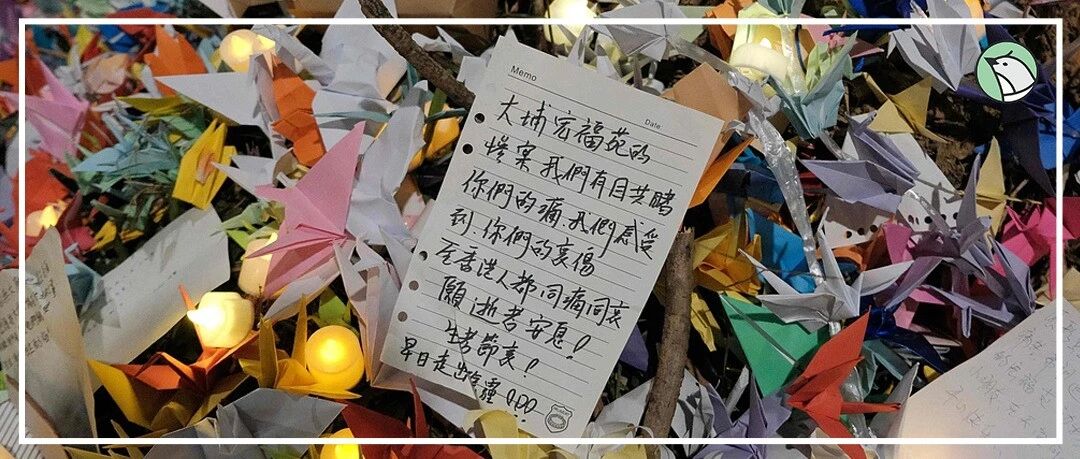 Memo
Date
大埔宏福苑的
慘案我們有目共睹
你們的痛我們感受
到你們的哀傷
全香港人都同痛同哀
願逝者安息!
生者節哀!
早日走出陰霾!!!